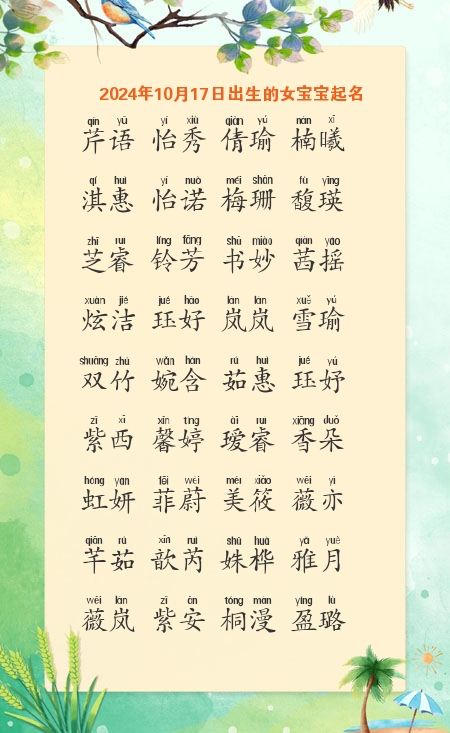 2024年10月17日出生的女宝宝起名
qín yǔ yí xiù qiàn yú nán xī
芹语 怡秀 倩瑜 楠曦
qí huì yí nuò méi shān fù yīng
淇惠 怡诺 梅珊 馥瑛
zhī ruì líng fāng shū miào qiàn yáo
芝睿 铃芳 书妙 茜摇
xuàn jié jué hǎo lán lán xuě yú
炫洁 珏好 岚岚 雪瑜
shuāng zhú wǎn hán rú huì jué yú
双竹 婉含 茹惠 珏妤
zǐ xī xīn tíng ài ruì xiāng duǒ
紫西 馨婷 瑷睿 香朵
hóng yán fēi wèi měi xiǎo wēi yì
虹妍 菲蔚 美筱 薇亦
qiān rú xīn ruì shū huà yǎ yuè
芊茹 歆芮 姝桦 雅月
wēi lán zǐ ān tóng màn yíng lù
薇岚 紫安 桐漫 盈璐